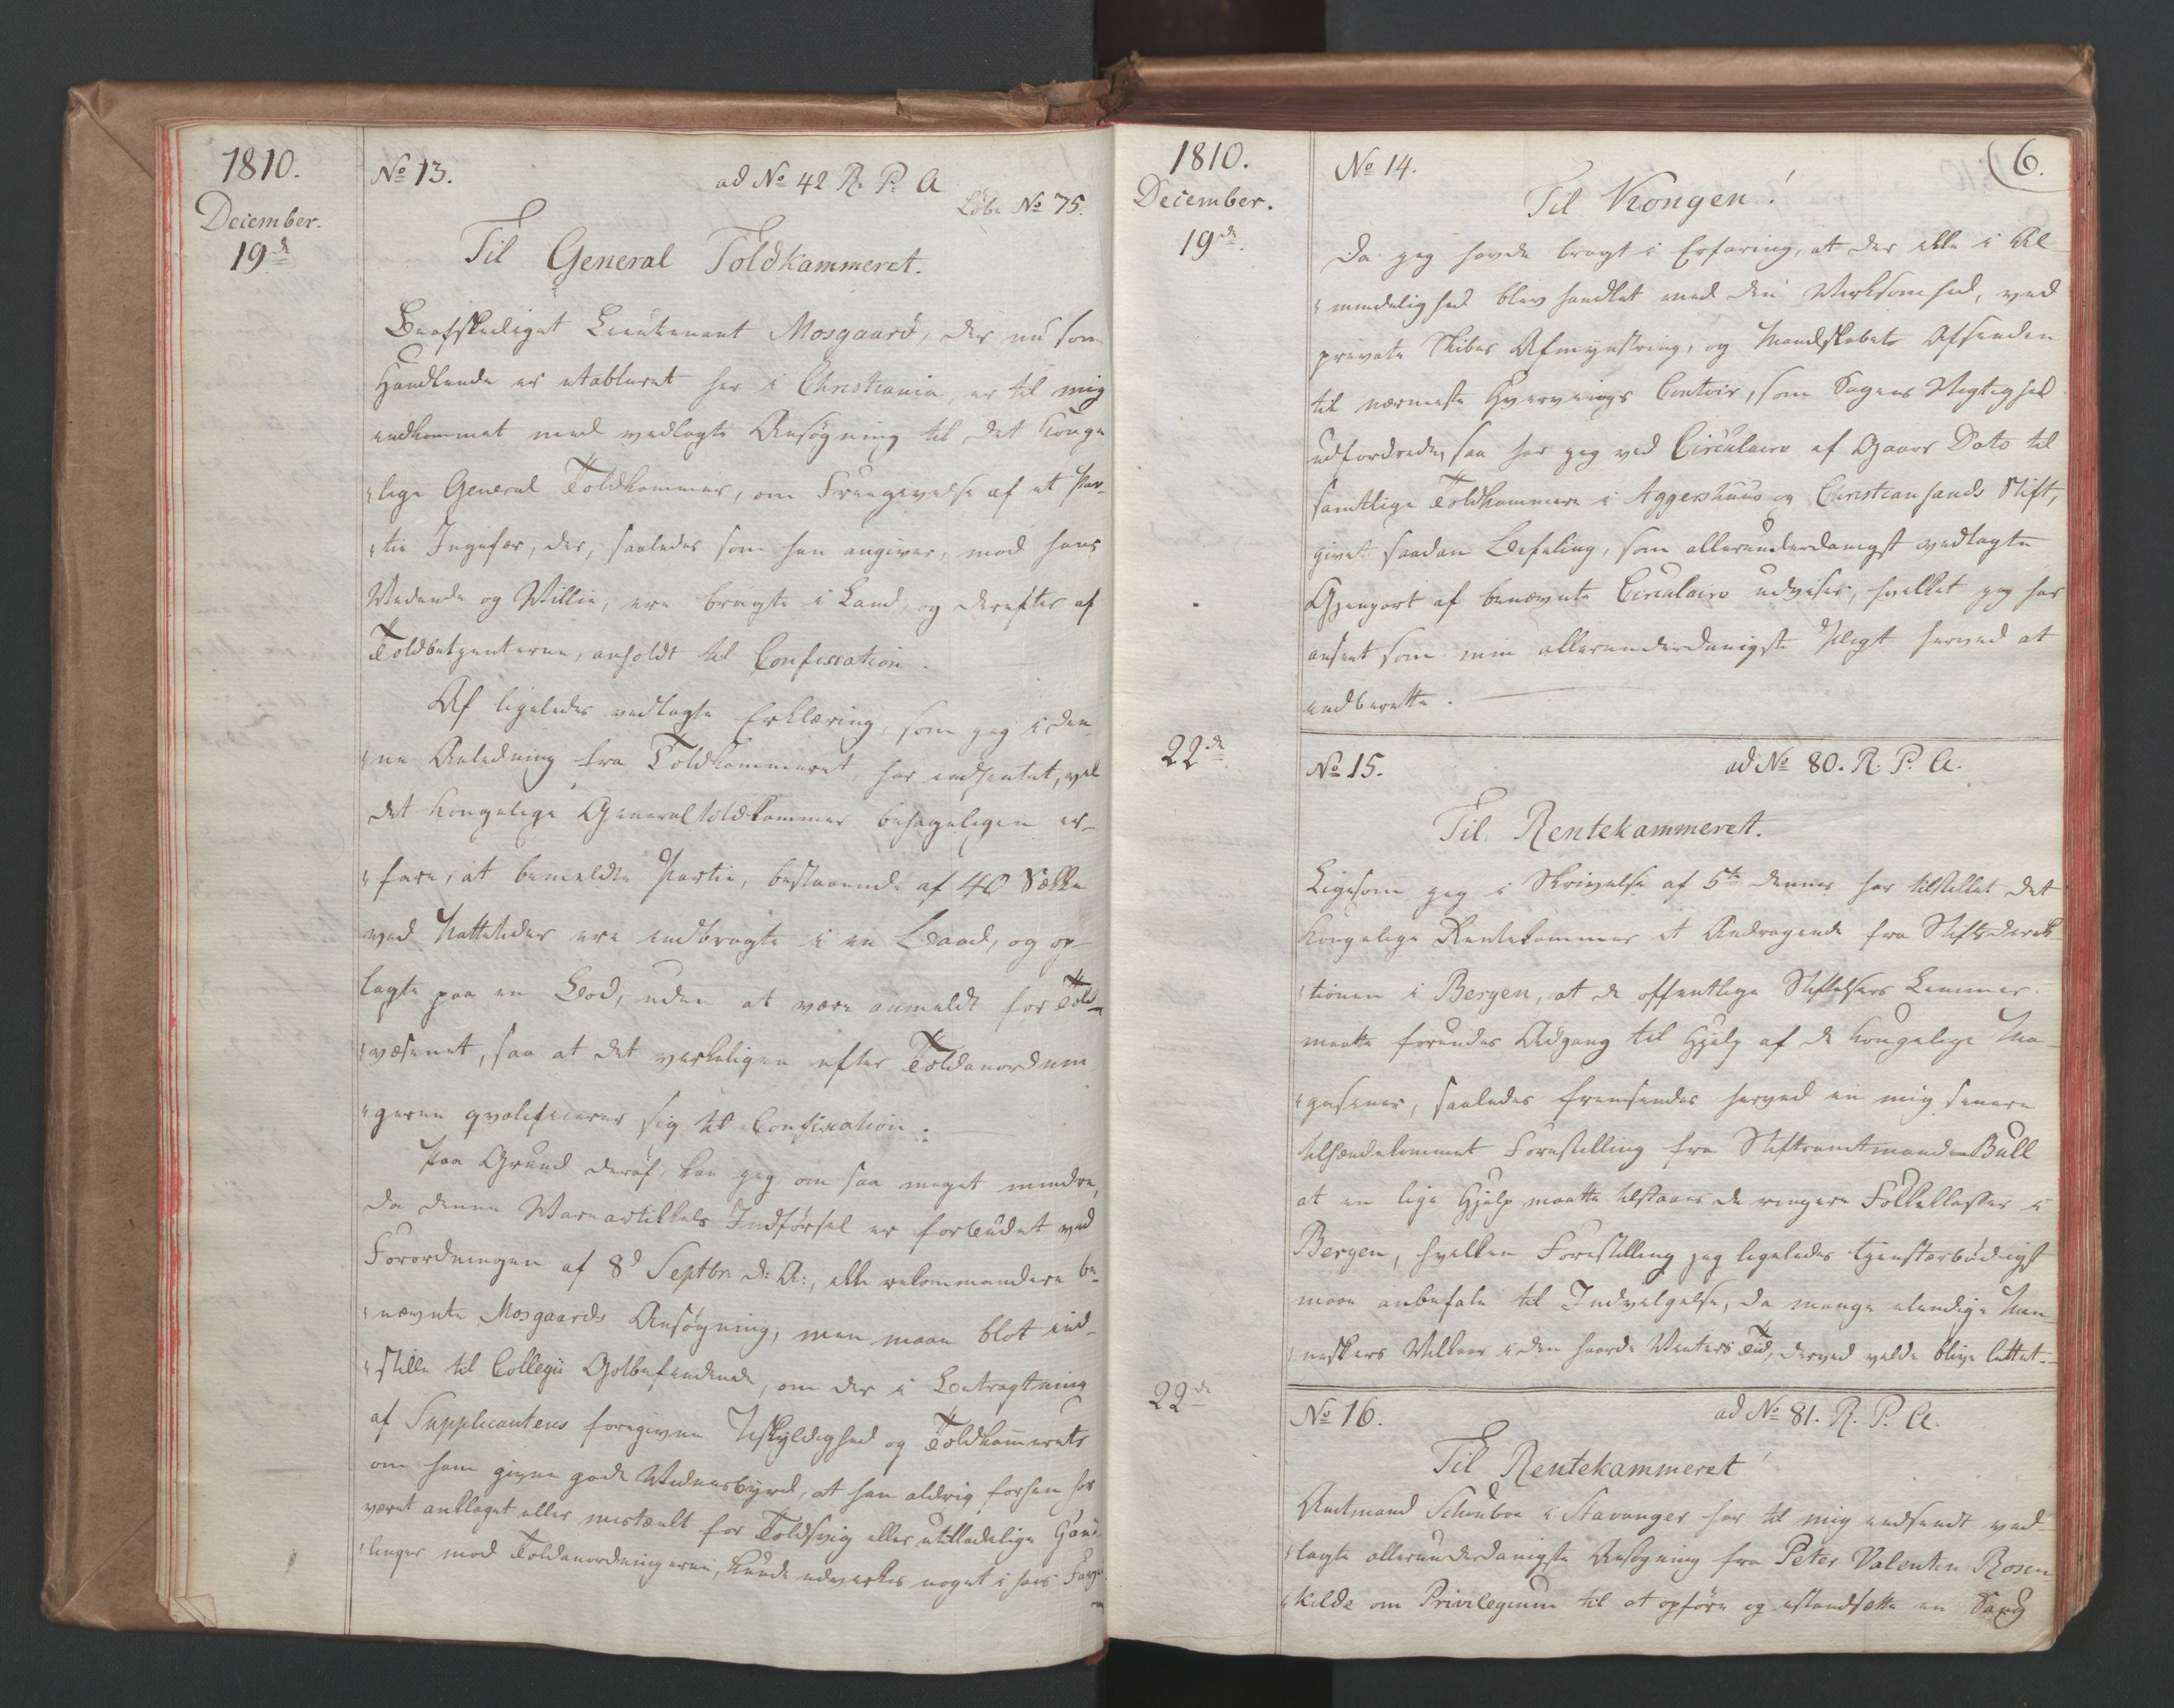 1810.
December.
19de
No 13.
ad No 42 R. P. A
Løbe No 75.
Til General Toldkammeret.
Beafskediget Lieutenant Mosgaard, der nu som
Handlende er etableret her i Christiania, er til mig
indkommet med vedlagte Ansøgning til det Konge
"lige General Toldkammer, om Frengivelse af et Par-
"tie Ingefær, der, saaledes som han angiver, mod hans
Vidende og Villie, ere bragte i Land og derefter af
Toldbetjenterne, anholdt til Confiscation.
Af ligeledes vedlagte Erklæring, som jeg i den
"ne Anledning fra Toldkammeret har indhentet, vil
det Kongelige General Toldkammer behageligen er-
"fare, at bemeldte Partie, bestaaende af 40 Sække
ved Nattetider ere indbragte i en Baad, og op-
lagte paa en Bod, uden at være anmeldt for Told-
"væsenet, saa at det verkeligen efter Toldanordnin
"gerne qvalificerer sig til Confiscation.
Paa Grund deraf, kan jeg om saa meget mindre,
da denne Vareartikkels Indførsel er forbudet ved
Forordningen af 8d Septbr: d: A:, ikke rekommandere be-
"nævnte Mosgaards Ansøgning, men maae blot ind-
"stille til Collegii Godbefindende, om der i Betragtning
af Supplicantens foregivne Uskyldighed og Toldkamerets
om ham givne gode Vidnesbyrd, at han aldrig forhen har
været anklaget eller mistænkt for Toldsvig eller utilladelige Hand
"linger mod Toldanordningerne, kunde udvirkes noget i hans Faveur
1810.
December.
19de
6.
No 14.
Til Kongen!
Da jeg havde bragt i Erfaring, at der ikke i Al
"mindelighed blev handlet med den Virksomhed, ved
private Skibes Afmynstring, og Mandskabets Afsenden
til nærmeste Hvervings Contoir, som Sagens Vigtighed
udfordrede, saa har jeg ved Circulaire af Gaars Dato til
samtlige Toldkammere i Aggershuus og Christiansands Stift,
givet saadan Befaling, som allerunderdanigst vedlagte
Gjenpart af benævnte Circulaire udviser, hvilket jeg har
anseet som min allerunderdanigste Pligt herved at
indberette.
22de
No 15.
ad No 80. R. P. A.
Til Rentekammeret.
Ligesom jeg i Skrivelse af 5te dennes har tilstillet det
Kongelige Rentekammer et Andragende fra Stiftsdirek
"tionen i Bergen, at de offentlige Stiftelsers Lemmer
maatte forundes Adgang til Hjelp af de Kongelige Ma-
"gasiner, saaledes fremsendes herved en mig senere
tilhændekommet Forestilling fra Stiftsamtmand Bull
at en lige Hjelp maatte tilstaaes de ringere Folkeklasser i
Bergen, hvilken Forestilling jeg ligeledes tjenstærbødigst
maae anbefale til Indvilgelse, da mange elendige Men
"neskers Vilkaar i den haarde Vinters Tid, derved vilde blive lettet.
22de
No 16.
ad No 81. R. P. A.
Til Rentekammeret!
Amtmand Schouboe i Stavanger har til mig indsendt ved
"lagte allerunderdanigste Ansøgning fra Peter Valentin Rosen
"kilde om Privilegium til at opføre og istandsætte en Saug